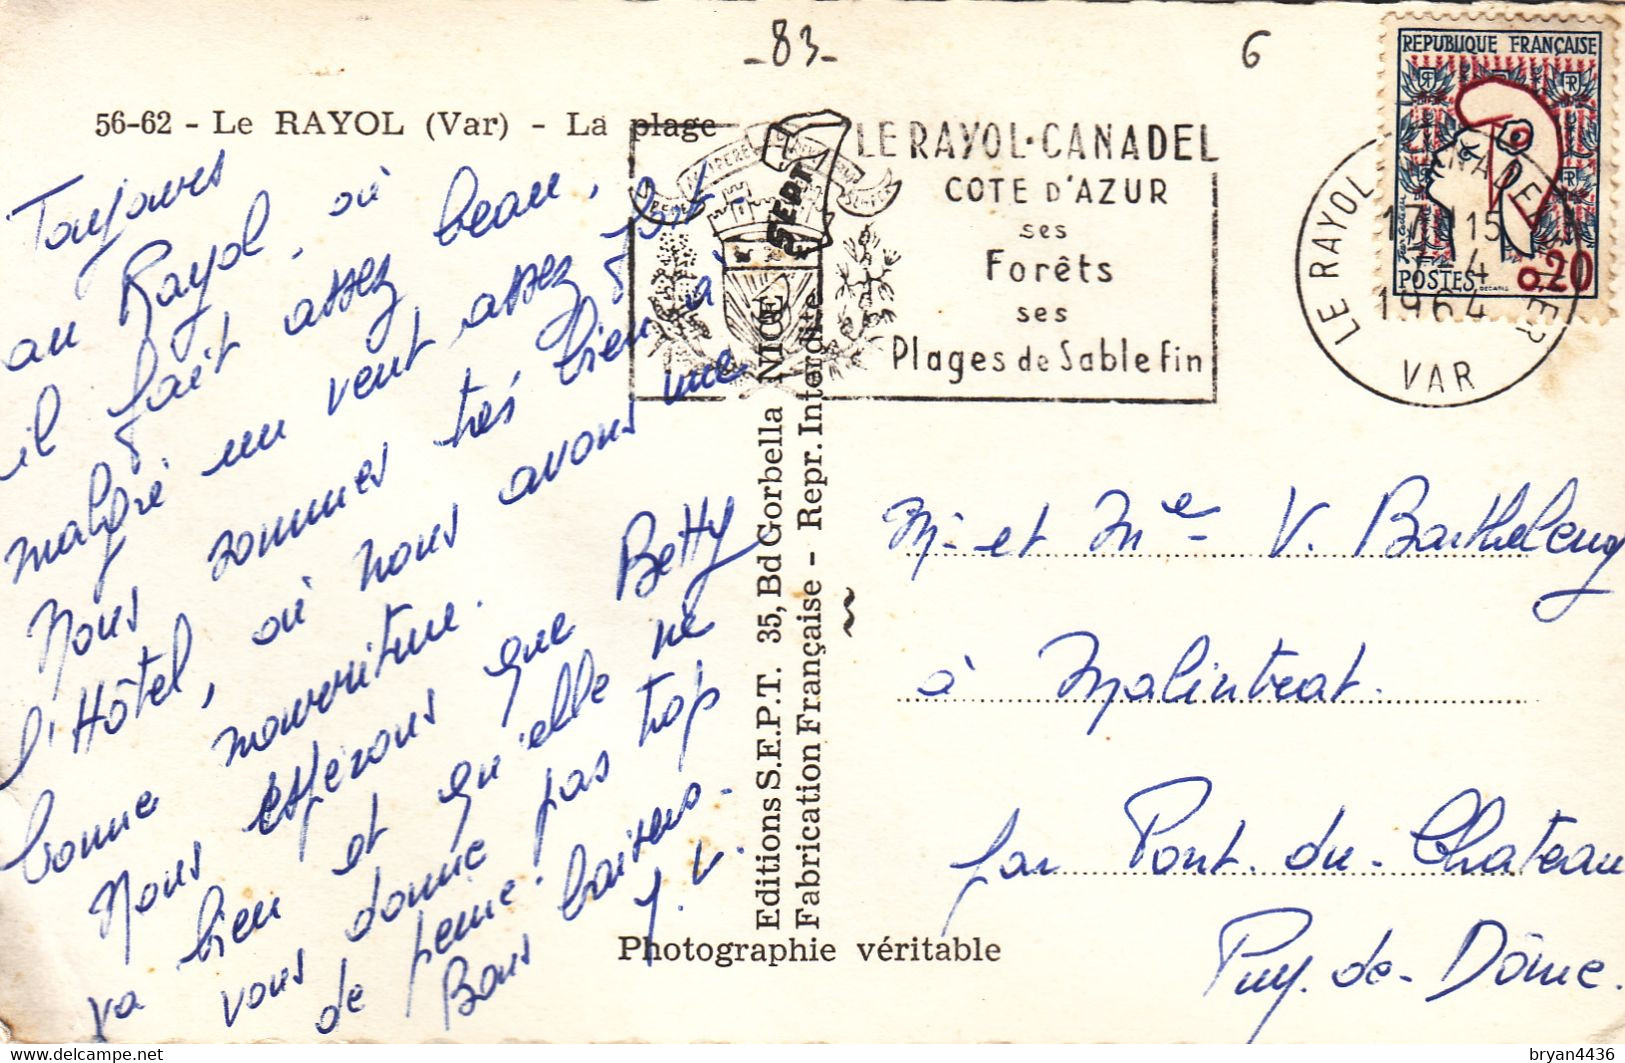 -83-
6
56-62 - Le RAYOL (Var) - La plage
Toujours
au Rayol, où
il fait assez beau,
malgré un vent assez fort.
Nous sommes très bien à
l'Hôtel, où nous avons une
bonne nourriture.
Nous espérons que Betty
va bien et qu'elle ne
vous donne pas trop
de peine.
Bons baisers.
J. V.
LE RAYOL·CANADEL
COTE D'AZUR
ses
Forêts
ses
Plages de Sable fin
REPUBLIQUE FRANÇAISE
POSTES
0,20
LE RAYOL CANADEL S MER
17H15
-4
1964
VAR
SEPT
Editions S.E.P.T. 35, Bd Gorbella NICE
Fabrication Française - Repr. Interdite
M. et Me V. Barthelemy
à Malintrat.
par Pont-du-Chateau
Puy-de-Dôme.
Photographie véritable
delcampe.net
bryan4436